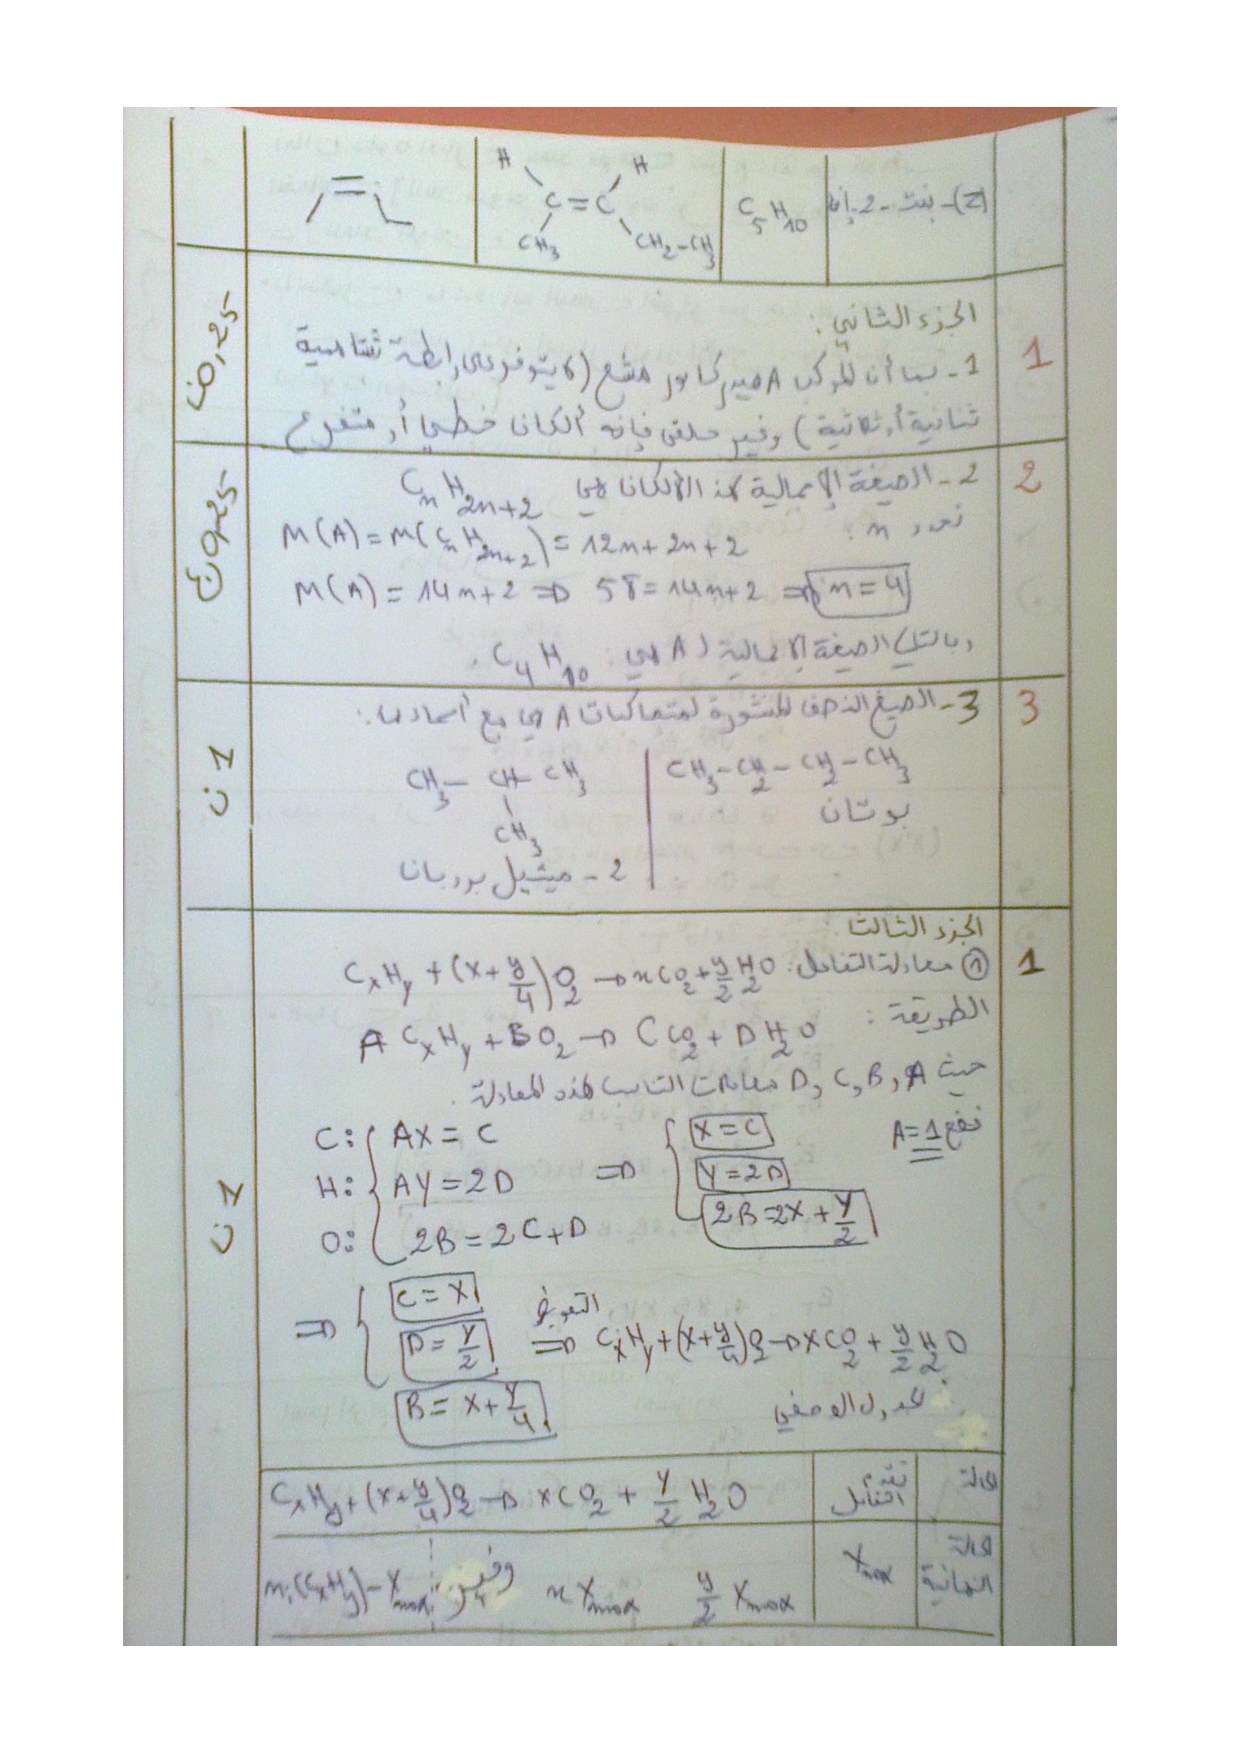 (Z)-بنت-2-إن C5H10 H H C=C CH3 CH2-CH3
الجزء الثاني:
1 1- بما أن المركب A هيدركابور مشبع (لا يتوفر على رابطة تساهمية 0,25ن
ثنائية أو ثلاثية) وغير حلقي فإنه ألكان خطي أو متفرع
2 2- الصيغة الإجمالية للألكانات هي CnH2n+2 0,25ن
نحدد n:
M(A)=M(CnH2n+2)=12n+2n+2
M(A)=14n+2 => 58=14n+2 => n=4
وبالتالي الصيغة الإجمالية ل A هي: C4H10.
3 3- الصيغ النصف المنشورة لمتماكبات A هي مع أسماءها: 1ن
CH3-CH2-CH2-CH3 | CH3-CH-CH3
بوتان CH3
2-ميثيل بروبان
الجزء الثالث
1 ① معادلة التفاعل: CxHy+(x+y/4)O2 → xCO2+y/2 H2O
الطريقة:
A CxHy+BO2 → CCO2+DH2O
حيث A, B, C, D معاملات التناسب لهذه المعادلة.
نضع A=1
C: AX=C => X=C
H: AY=2D Y=2D 1ن
O: 2B=2C+D 2B=2X+Y/2
=> C=X التعويض
D=Y/2 => CxHy+(x+y/4)O2 → XCO2+y/2 H2O
B=X+Y/4
الجدول الوصفي
الحالة تقدم التفاعل CxHy+(x+y/4)O2 → xCO2+Y/2 H2O
الحالة النهائية Xmax ni(CxHy)-Xmax وفير x Xmax y/2 Xmax